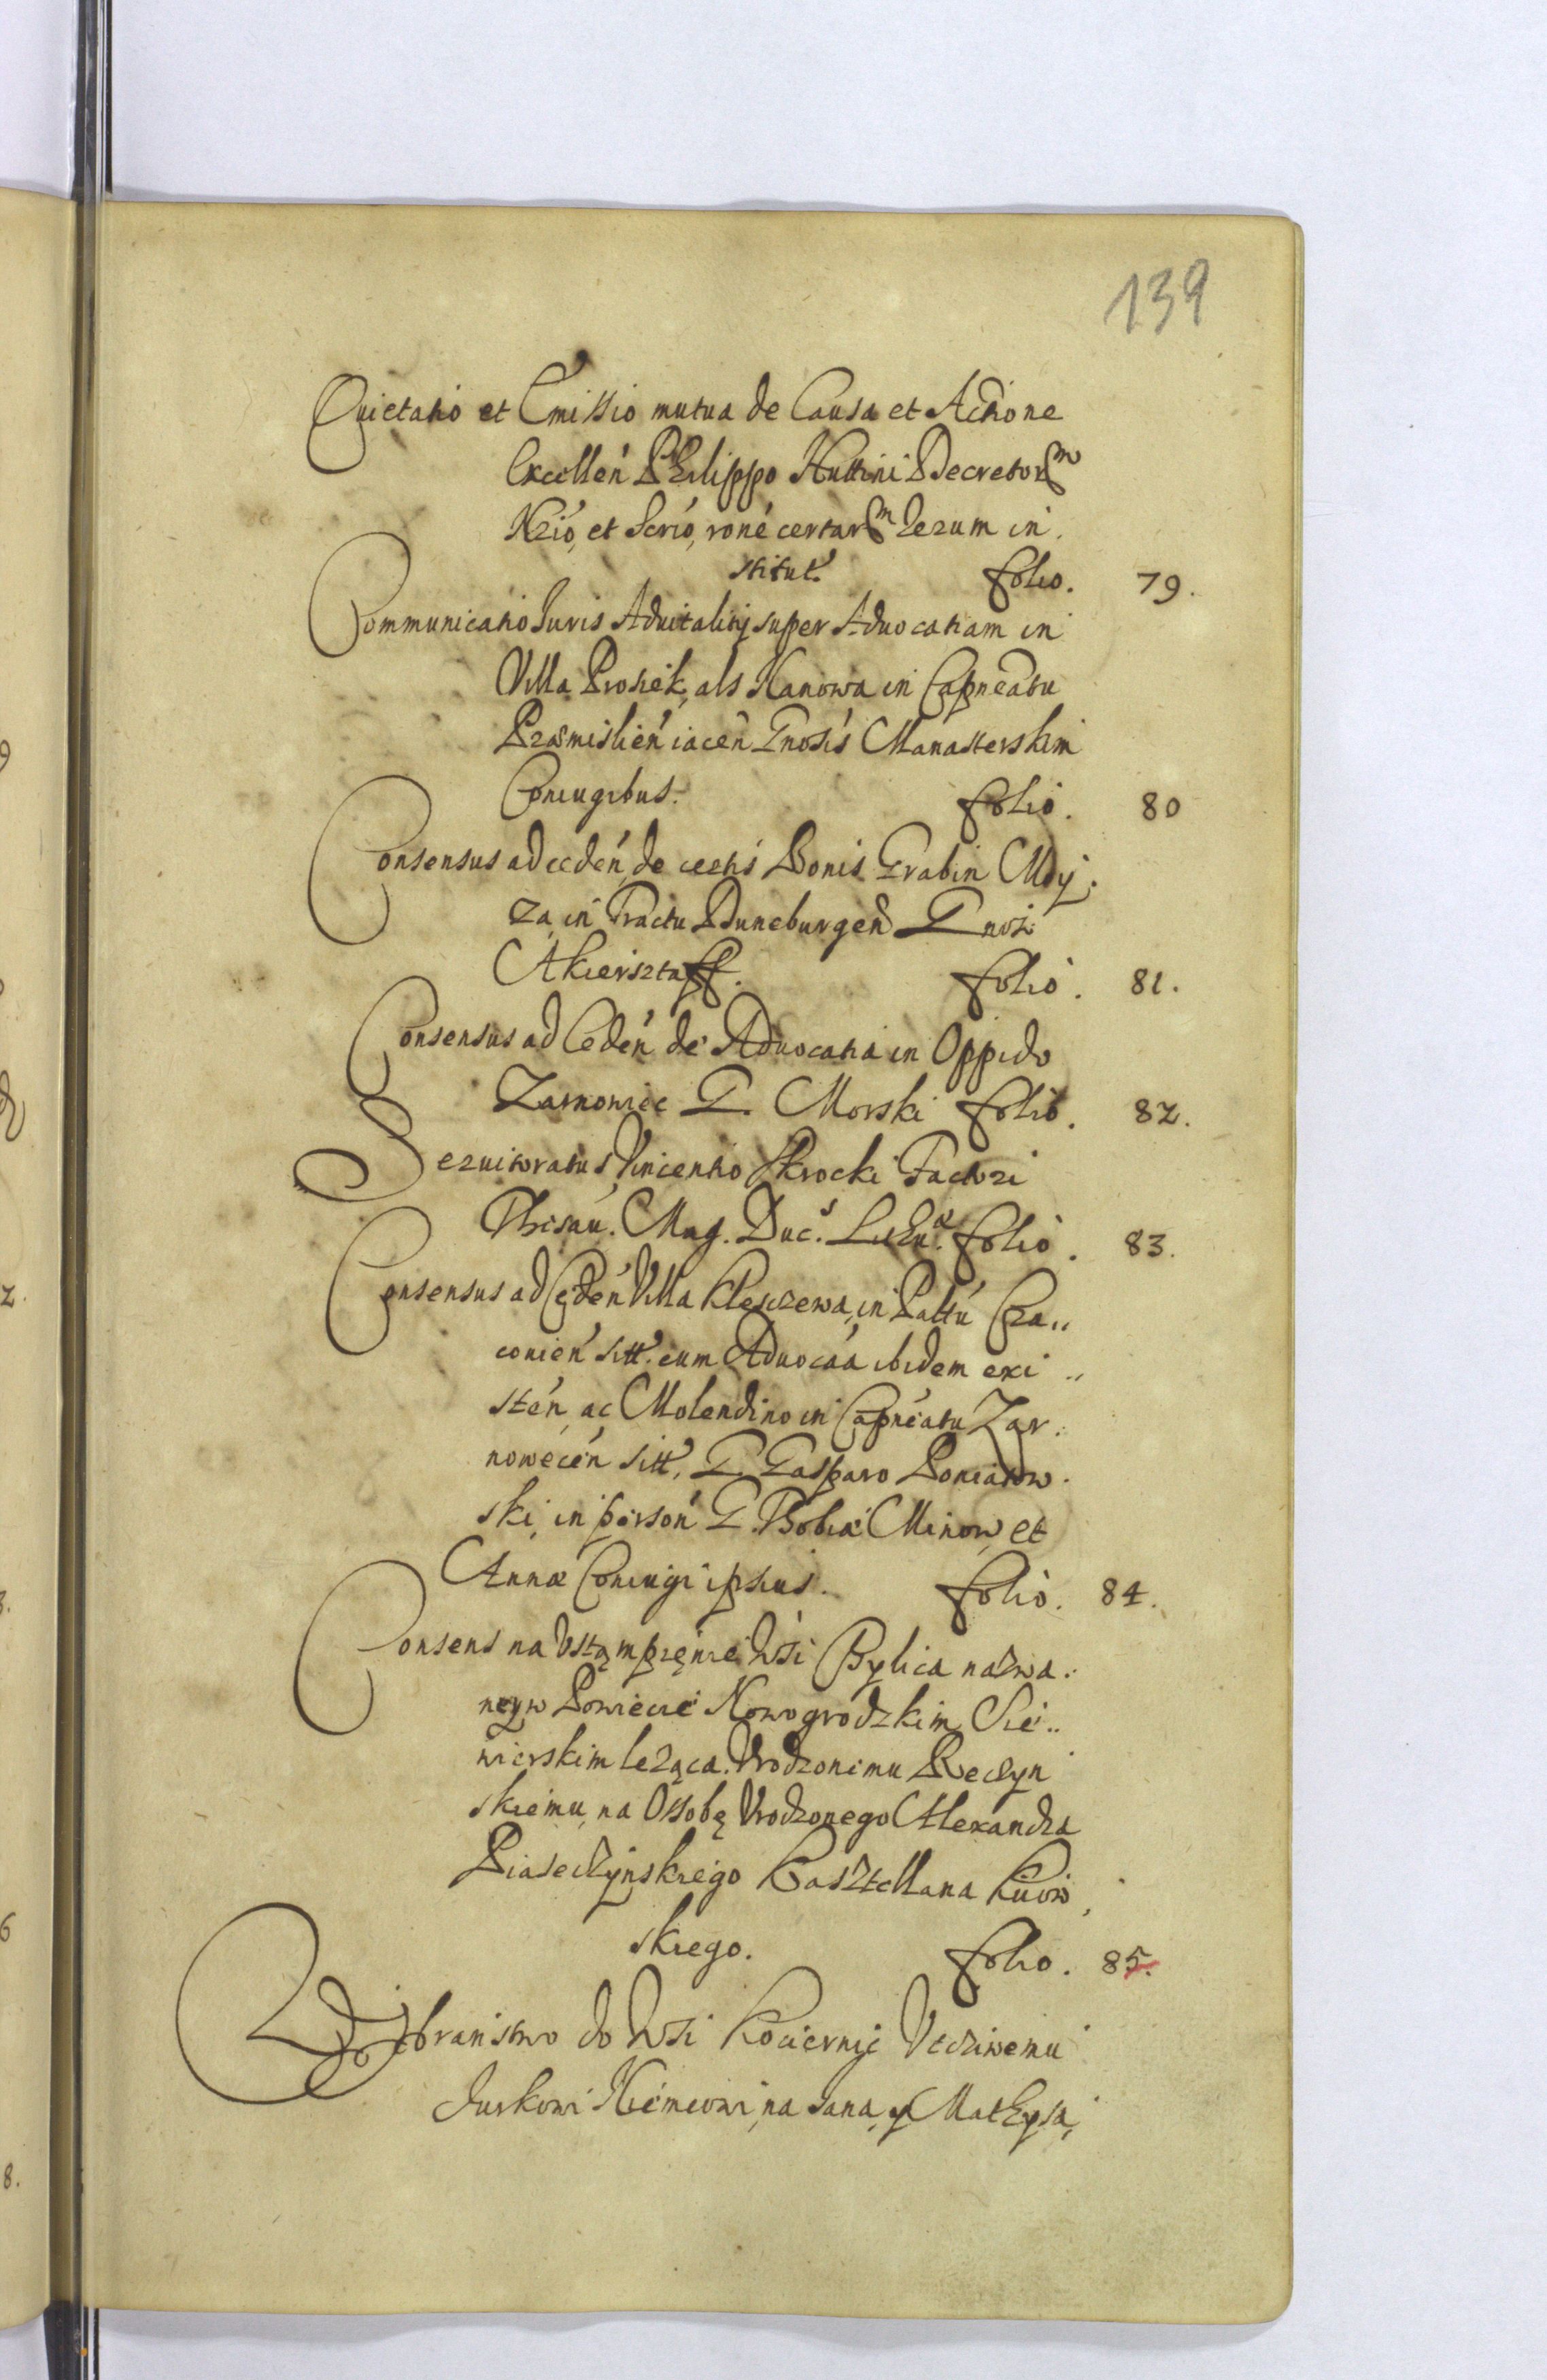 139
Quietatio et Emissio mutua de Causa et Actione
Excellen Philippo Huttini Decretorm
Nrio, et Scrio, rone certarm Rerum in
stitut. folio. 79.
Communicatio Iuris Aduitalitij super Aduocatiam in
Villa Prosiek, als Hanowa in Capneatu
Præmislien iacen Gnosis Manasterskim
Coniugibus. folio. 80
Consensus ad ceden de certis Bonis Grabin Moy
za in Tractu Duneburgen Gnosi
Akiersztaff. folio. 81.
Consensus ad Ceden de Aduocatia in Oppido
Zarnowiec G. Morski folio. 82.
Seruitoratus Vincentio Skrocki Factori
Thesau. Mag. Duc.s Lithu.æ folio. 83.
Consensus ad Ceden Villa Kleszczewa, in Pallu Cra,,
couien sitt. cum Aduocaa ibidem exi ,,
sten, ac Molendino in Capneatu Zar:
nowecen sitt, G. Gasparo Poniatow.
ski, in person G. Tobiæ Minow, et
Annæ Coniugi ipsius. folio. 84.
Consens na Vstąmpięnie Wsi Bylica nazwa:
ney w Powiecie Nowogrodzkim Sie,,
wierskim leżąca. Vrodzonemu Peczyn
skiemu, na Ossobę Vrodzonego Alexandra
Piaseczynskiego Kasztellana Kiiow,
skiego. folio. 85.
Wybranistwo do Wsi Kociernie Vcciwemu
Jurkowi Niemcowi, na Jana, y Mathysa,